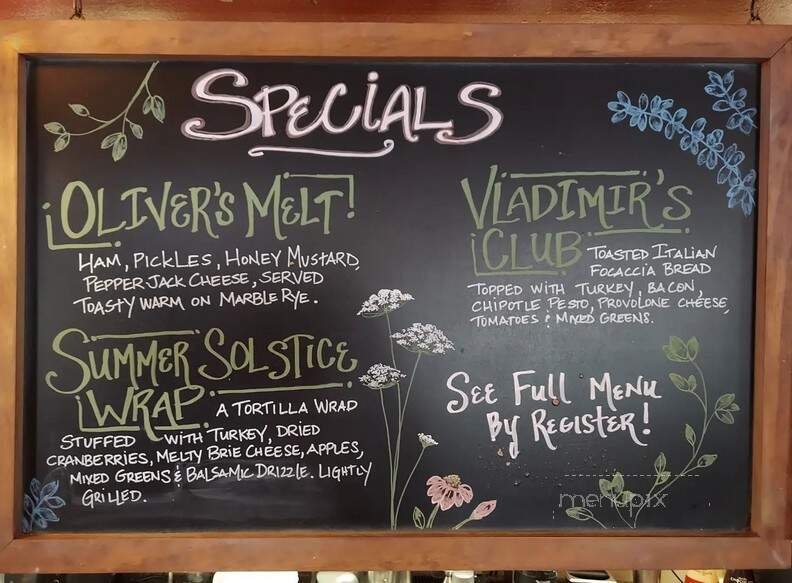 SPECiALS
OLIVER'S MELT!
HAM, PICKLES, HONEY MUSTARD,
PEPPER JACK CHEESE, SERVED
TOASTY WARM ON MARBLE RYE.
SUMMER SOLSTICE
WRAP A TORTILLA WRAP
STUFFED WITH TURKEY, DRIED
CRANBERRIES, MELTY BRIE CHEESE, APPLES,
MIXED GREENS & BALSAMIC DRIZZLE. LIGHTLY
GRILLED.
VLADIMIR'S
CLUB TOASTED ITALIAN
FOCACCIA BREAD
TOPPED WITH TURKEY, BACON,
CHIPOTLE PESTO, PROVOLONE CHEESE,
TOMATOES & MIXED GREENS.
SEE FULL MENU
By REGISTER!
menupix